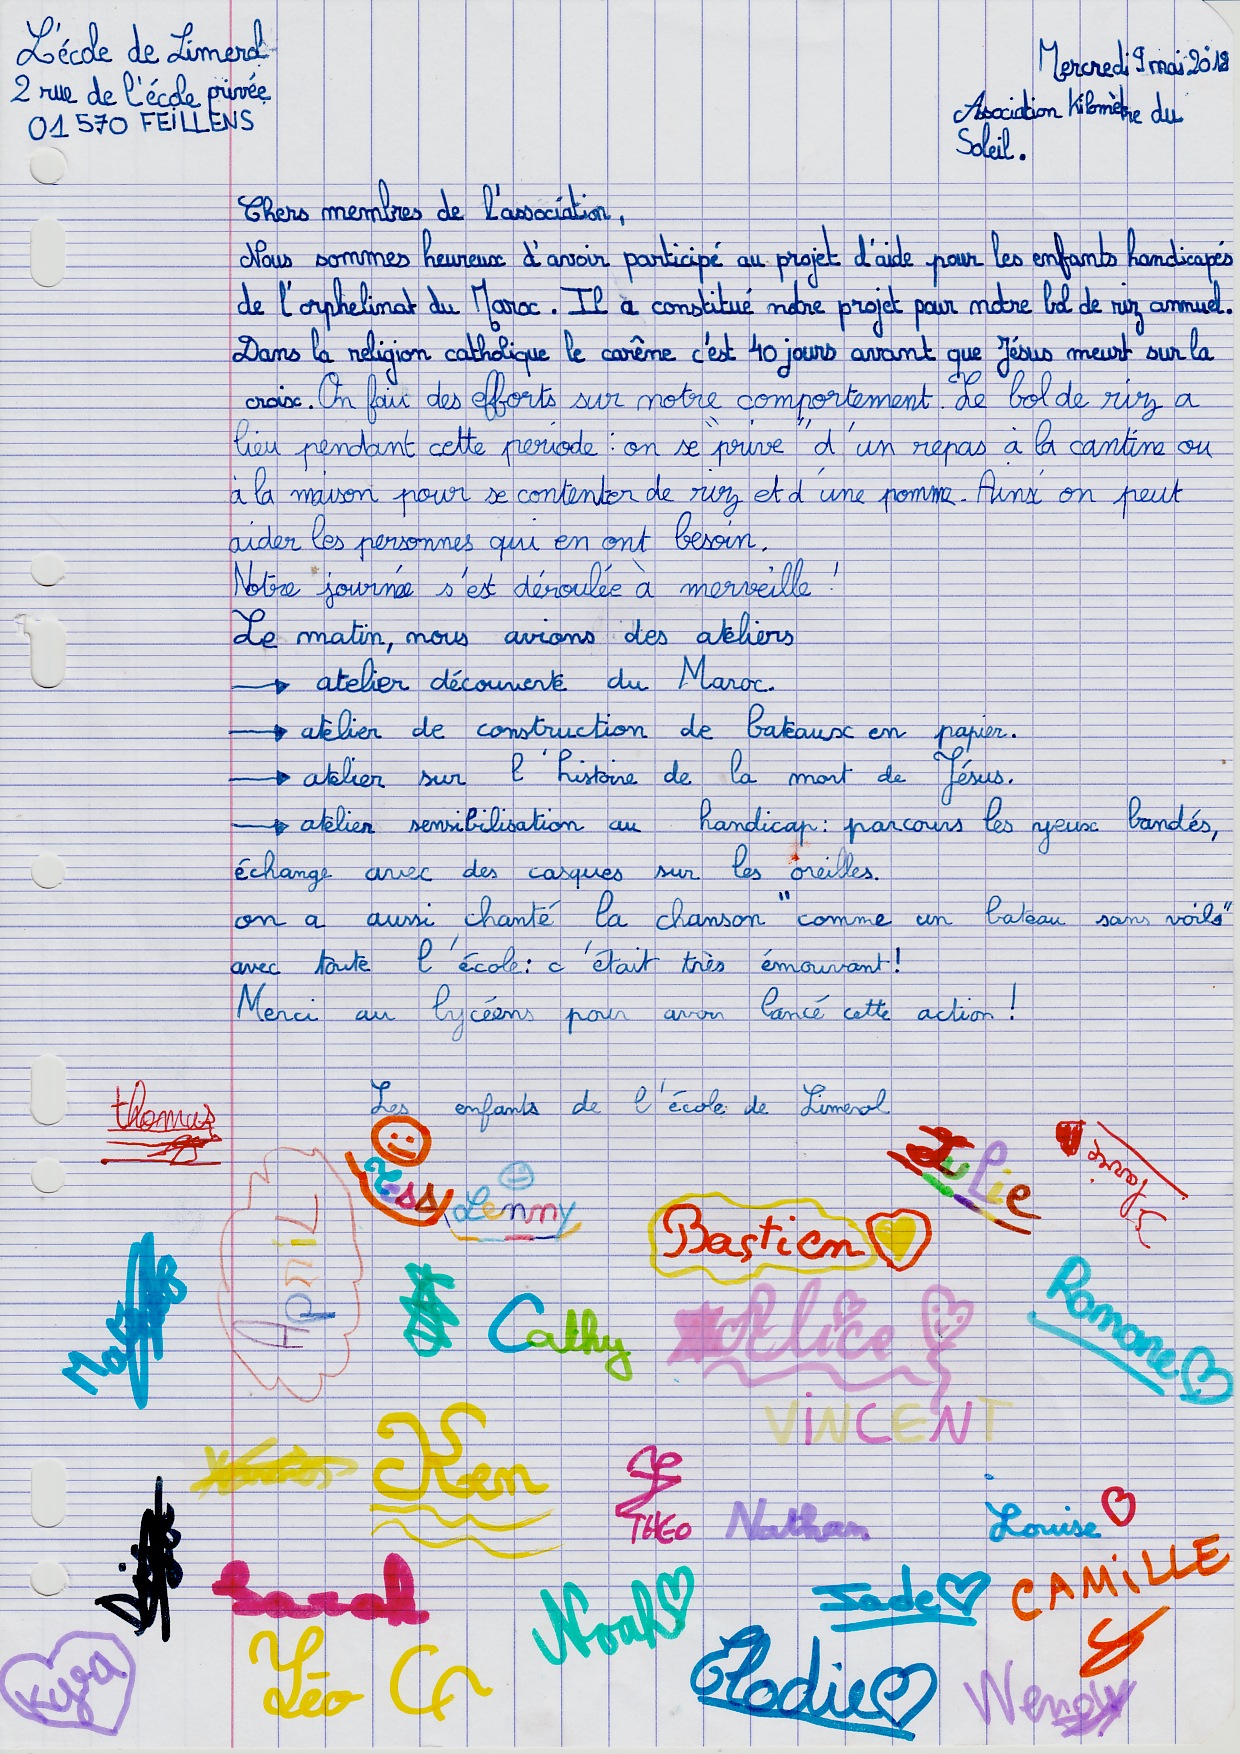 L'école de Limerol
2 rue de l'école privée
01 570 FEILLENS
Mercredi 9 mai 2018
Association Kilomètre du
Soleil.
Chers membres de l'association,
Nous sommes heureux d'avoir participé au projet d'aide pour les enfants handicapés
de l'orphelinat du Maroc. Il a constitué notre projet pour notre bol de riz annuel.
Dans la religion catholique le carême c'est 40 jours avant que Jésus meurt sur la
croix. On fait des efforts sur notre comportement. Le bol de riz a
lieu pendant cette période : on se "prive" d'un repas à la cantine ou
à la maison pour se contenter de riz et d'une pomme. Ainsi on peut
aider les personnes qui en ont besoin.
Notre journée s'est déroulée à merveille !
Le matin, nous avions des ateliers
→ atelier découverte du Maroc.
→ atelier de construction de bateaux en papier.
→ atelier sur l'histoire de la mort de Jésus.
→ atelier sensibilisation au handicap: parcours les yeux bandés,
échange avec des casques sur les oreilles.
on a aussi chanté la chanson "comme un bateau sans voile"
avec toute l'école: c'était très émouvant!
Merci au lycéens pour avoir lancé cette action !
Les enfants de l'école de Limerol
thomas
April
Tess
Lenny
Bastien
Julie
Cathy
Alice
Romane
VINCENT
Ken
THÉO
Nathan
Louise
Sarah
Noah
Jade
CAMILLE
Kyra
Léo
Elodie
Wendy